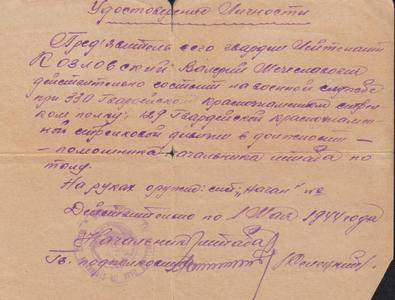 Удостоверение Личности
Предъявитель сего гвардии Лейтенант
Козловский Валерий Мечеславович
действительно состоит на военной службе
при 330 Гвардейском Краснознаменном
полку, 129 Гвардейской Краснознамен-
ной стрелковой дивизии в должности -
- помощника начальника штаба по
тылу.
На руках оружие: сист. „Наган" №
Действительно по 1 Мая 1944 года
Начальник штаба
Гв. подполковник